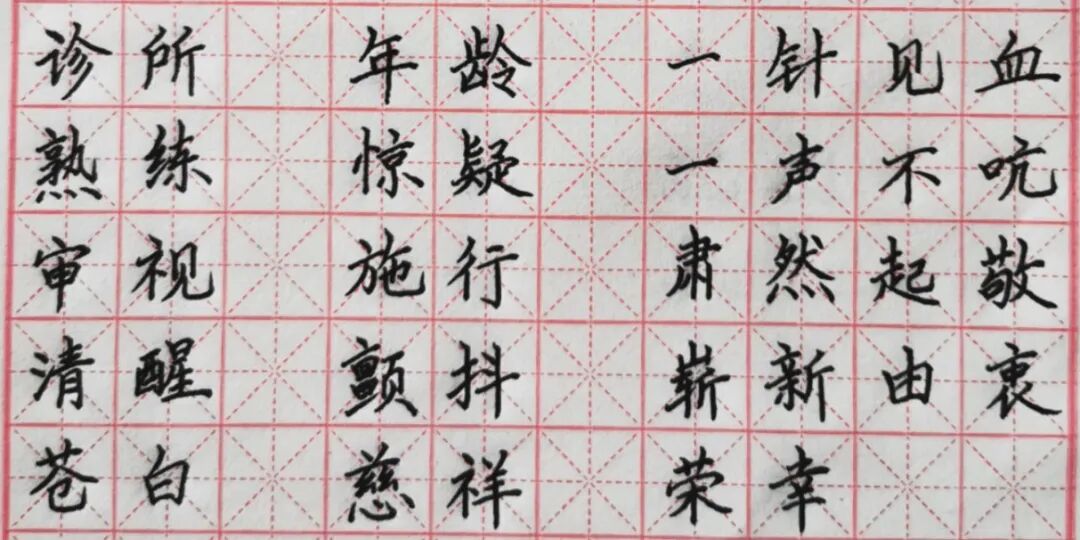 诊所 年龄 一针见血
熟练 惊疑 一声不吭
审视 施行 肃然起敬
清醒 颤抖 崭新由衷
苍白 慈祥 荣幸